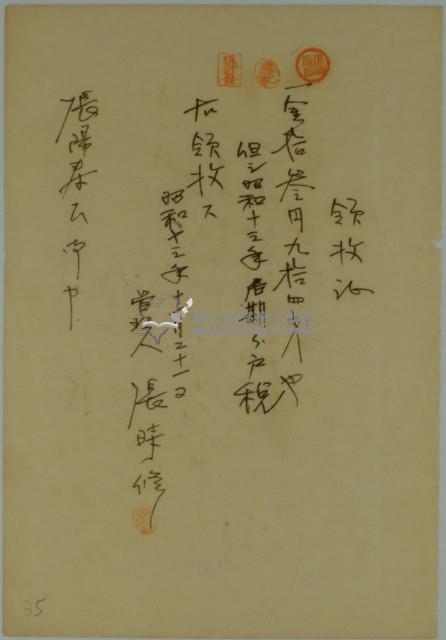 領收证
一金拾叁円九拾四戋也
但シ昭和十三年后期分戶稅
右領收ス
昭和十三年十月二十一日
管理人 張時修
張陽春公 御中
35